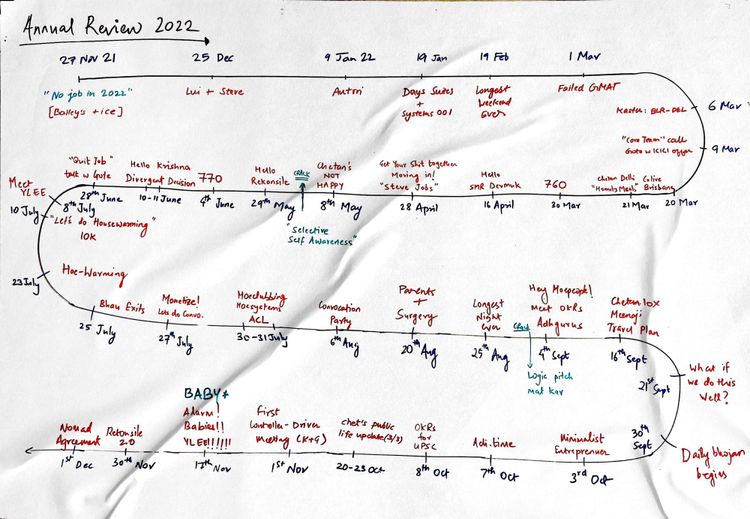 Annual Review 2022
27 Nov 21
25 Dec
9 Jan 22
19 Jan
19 Feb
1 Mar
"No job in 2022"
[Baileys + ice]
Lui + Steve
Autori
Days Suites
+
Systems 001
Longest
weekend
ever
Failed GMAT
BLR-DEL
6 Mar
"Core Team" call
9 Mar
"Quit Job"
talk w
28th June
Hello Krishna
Divergent Decision
10-11 June
770
4th June
Hello
Rekonsile
29th May
CRACK
"Selective
Self Awareness"
Chetan's
NOT
HAPPY
8th May
Get Your Shit together
Moving in!
"Steve Jobs"
28 April
Hello
SMR Devmuk
16 April
760
30 Mar
Chetan Delhi
21 Mar
Colive
Brisbang
20 Mar
Meet
YLEE
10 July
8th July
"Let's do Housewarming"
10K
23 July
Hoe-Warming
Bhau Exits
25 July
Monetize!
Lets do Convo.
27th July
Hoeclubbing
Hoesystems
ACL
30-31 July
Convocation
Party
6th Aug
Parents
+
Surgery
20th Aug
Longest
Night
Ever
25th Aug
Logic pitch
mat kar
Hey
Meet OKRs
Adhgurus
4th Sept
Chetan lox
Meenoji
Travel Plan
16th Sept
21st Sept
What if
we do this
Well?
30th
Sept
Daily bhojan
begins
Nomad
Agreement
1st Dec
Retonsile
2.0
30th Nov
BABY+
Alarm!
Babies!!
YLEE!!!!!!
17th Nov
First
Controller-Driver
Meeting (K+G)
1st Nov
chet's public
life update (3/3)
20-23 Oct
OKRs
for
UPSC
8th Oct
Adi.time
7th Oct
Minimalist
Entreprenuer
3rd Oct